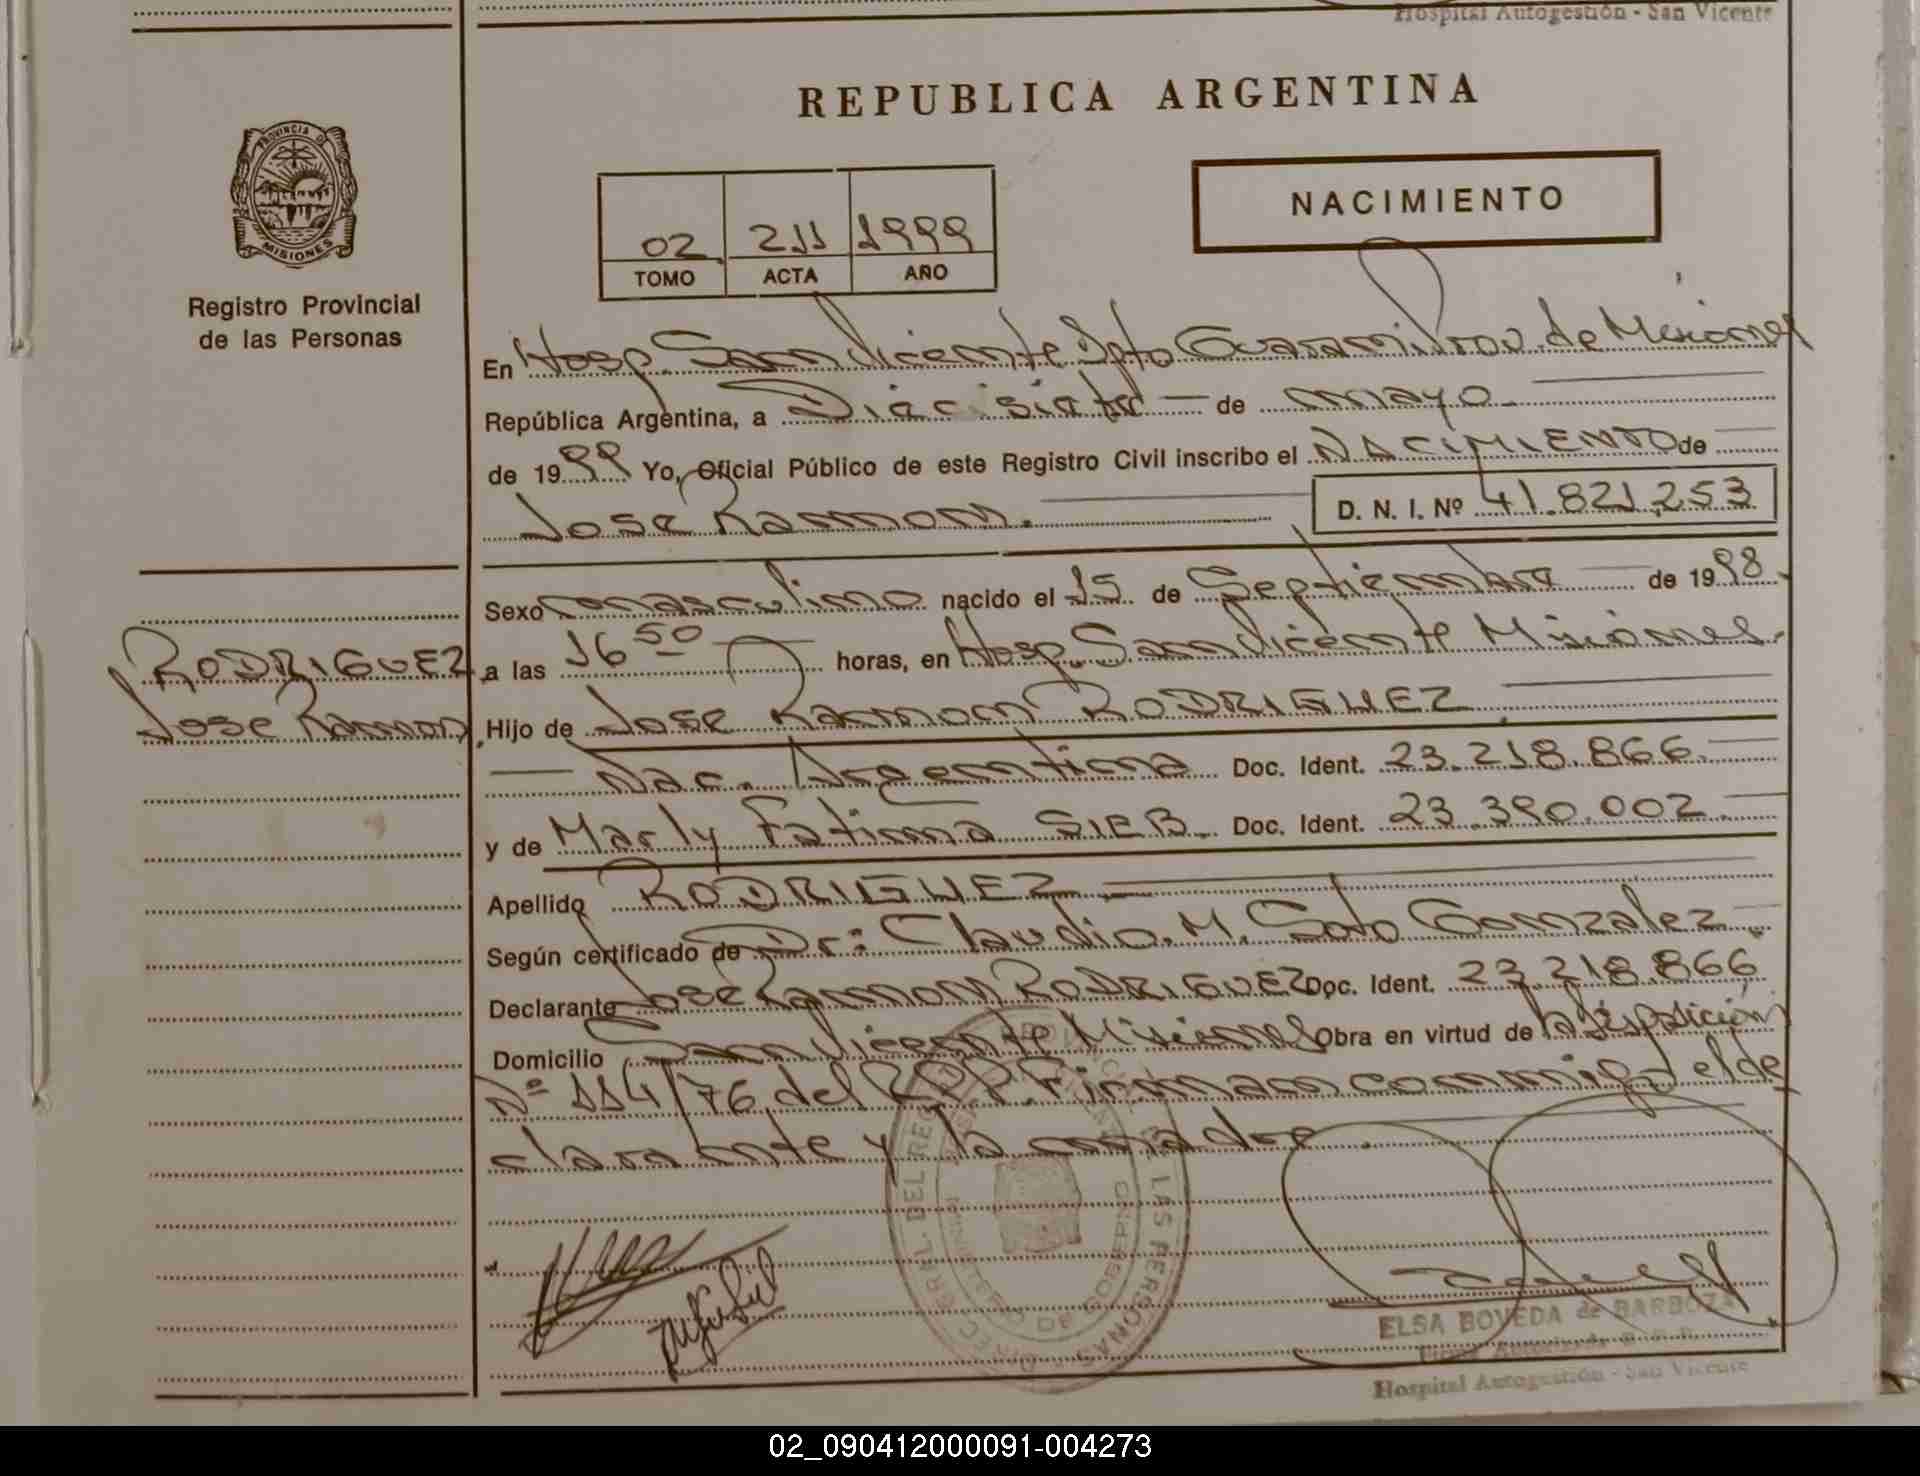 Hospital Autogestión - San Vicente
REPUBLICA ARGENTINA
PROVINCIA DE
MISIONES
Registro Provincial
de las Personas
02 211 1999
TOMO ACTA AÑO
NACIMIENTO
En Hosp. San Vicente Dpto Guarani Prov. de Misiones
República Argentina, a Diecisiete de mayo
de 1999 Yo, Oficial Público de este Registro Civil inscribo el NACIMIENTO de
José Ramon. D. N. I. Nº 41.821.253
Sexo masculino nacido el 15 de Septiembre de 1998
a las 16 50 horas, en Hosp. San Vicente Misiones
RODRIGUEZ
Jose Ramon
Hijo de Jose Ramon RODRIGUEZ
Nac. Argentina Doc. Ident. 23.218.866
y de Marly Fatima SIEB Doc. Ident. 23.390.002
Apellido RODRIGUEZ
Según certificado de Dr: Claudio. M. Soto Gonzalez
Declarante Jose Ramon RODRIGUEZ Doc. Ident. 23.218.866
Domicilio San Vicente Misiones Obra en virtud de Disposición
Nº 114/76 del RPP. Firman conmigo el de
clarante y la madre.
DEL REG LAS PERSONAS
MINISTERIO DE GOBIERNO
ELSA BOVEDA de BARBOZA
Firma Autorizada
Hospital Autogestión - San Vicente
02_090412000091-004273